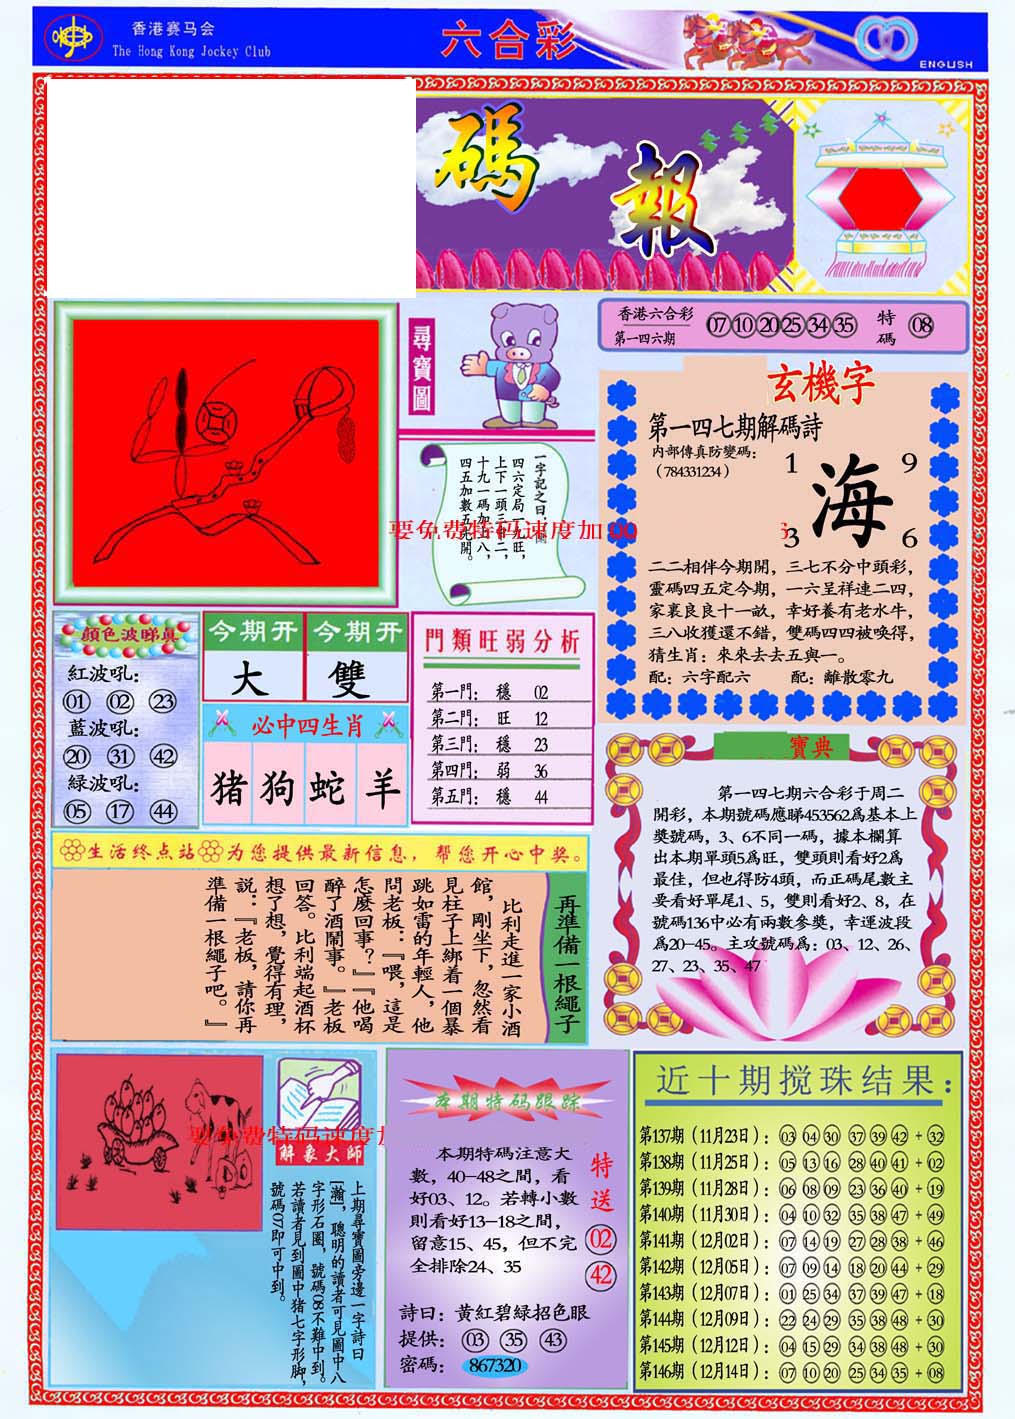 香港赛马会
The Hong Kong Jockey Club
六合彩
ENGLISH
碼報
尋寶圖
香港六合彩
第一四六期
07 10 20 25 34 35
特碼
08
一字記之曰
四六定局一九旺，
四五加數五死開。
玄機字
第一四七期解碼詩
内部傳真防變碼：
（784331234）
1 9
海
3 6
二二相伴今期開，三七不分中頭彩，
靈碼四五定今期，一六呈祥連二四，
家裏良良十一畝，幸好養有老水牛，
三八收獲還不錯，雙碼四四被唤得，
猜生肖：來來去去五與一。
配：六字配六 配：離散零九
顔色波睇真
紅波吼：
01 02 23
藍波吼：
20 31 42
綠波吼：
05 17 44
今期开 今期开
大 雙
必中四生肖
猪 狗 蛇 羊
門類旺弱分析
第一門： 穩 02
第二門： 旺 12
第三門： 穩 23
第四門： 弱 36
第五門： 穩 44
寶典
第一四七期六合彩于周二
開彩，本期號碼應睇453562爲基本上
獎號碼，3、6不同一碼，據本欄算
出本期單頭5爲旺，雙頭則看好2爲
最佳，但也得防4頭，而正碼尾數主
要看好單尾1、5，雙則看好2、8，在
號碼136中必有兩數參獎，幸運波段
爲20-45。主攻號碼爲：03、12、26、
27、23、35、47
生活终点站 为您提供最新信息，帮您开心中奖。
再準備一根繩子
比利走進一家小酒
館，剛坐下，忽然看
見柱子上綁着一個暴
跳如雷的年輕人，他
問老板：『喂，這是
怎麽回事？』『他喝
醉了酒鬧事。』老板
回答。比利端起酒杯
想了想，覺得有理，
説：『老板，請你再
準備一根繩子吧。』
解象大師
上期尋寶圖旁邊一字詩曰
[瀚]，聰明的讀者可見圖中八
字形石圈，號碼08不難中到。
若讀者見到圖中猪七字形脚，
號碼07即可中到。
本期特码跟踪
本期特碼注意大
數，40-48之間，看
好03、12。若轉小數
則看好13-18之間，
留意15、45，但不完
全排除24、35
特送
02
42
詩曰：黄紅碧緑招色眼
提供：03 35 43
密碼：867320
近十期搅珠结果：
第137期（11月23日）：03 04 30 37 39 42 + 32
第138期（11月25日）：05 13 16 28 40 41 + 02
第139期（11月28日）：06 08 09 23 36 40 + 19
第140期（11月30日）：04 10 32 35 38 47 + 49
第141期（12月02日）：07 14 19 27 28 38 + 46
第142期（12月05日）：07 09 14 18 20 44 + 29
第143期（12月07日）：01 25 34 37 39 47 + 18
第144期（12月09日）：22 24 29 35 38 48 + 30
第145期（12月12日）：04 15 29 34 38 48 + 30
第146期（12月14日）：07 10 20 25 34 35 + 08